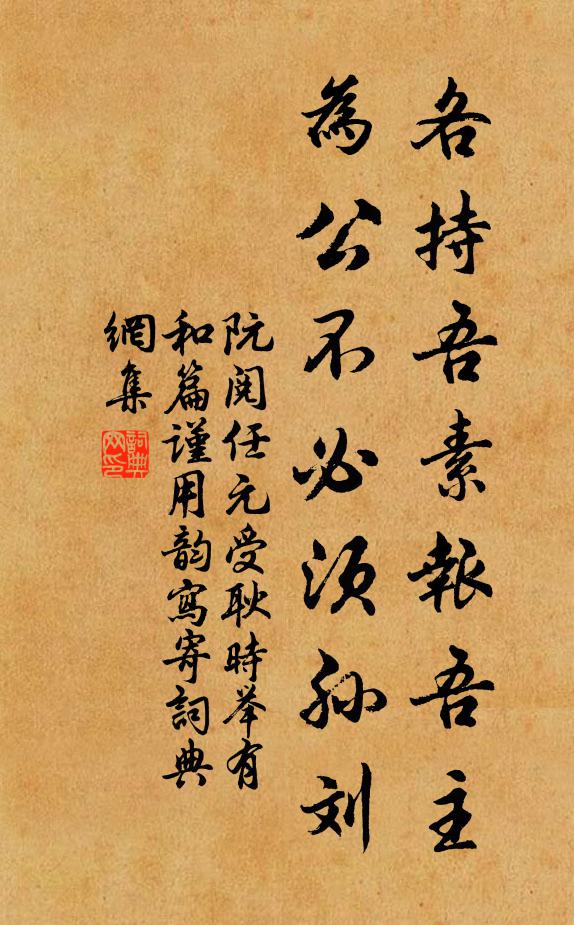 各持吾素報吾主
為公不必須孙刘
阮阅任元受耿時举有
和篇谨用韵寫寄詞典
網集
詞典
网印